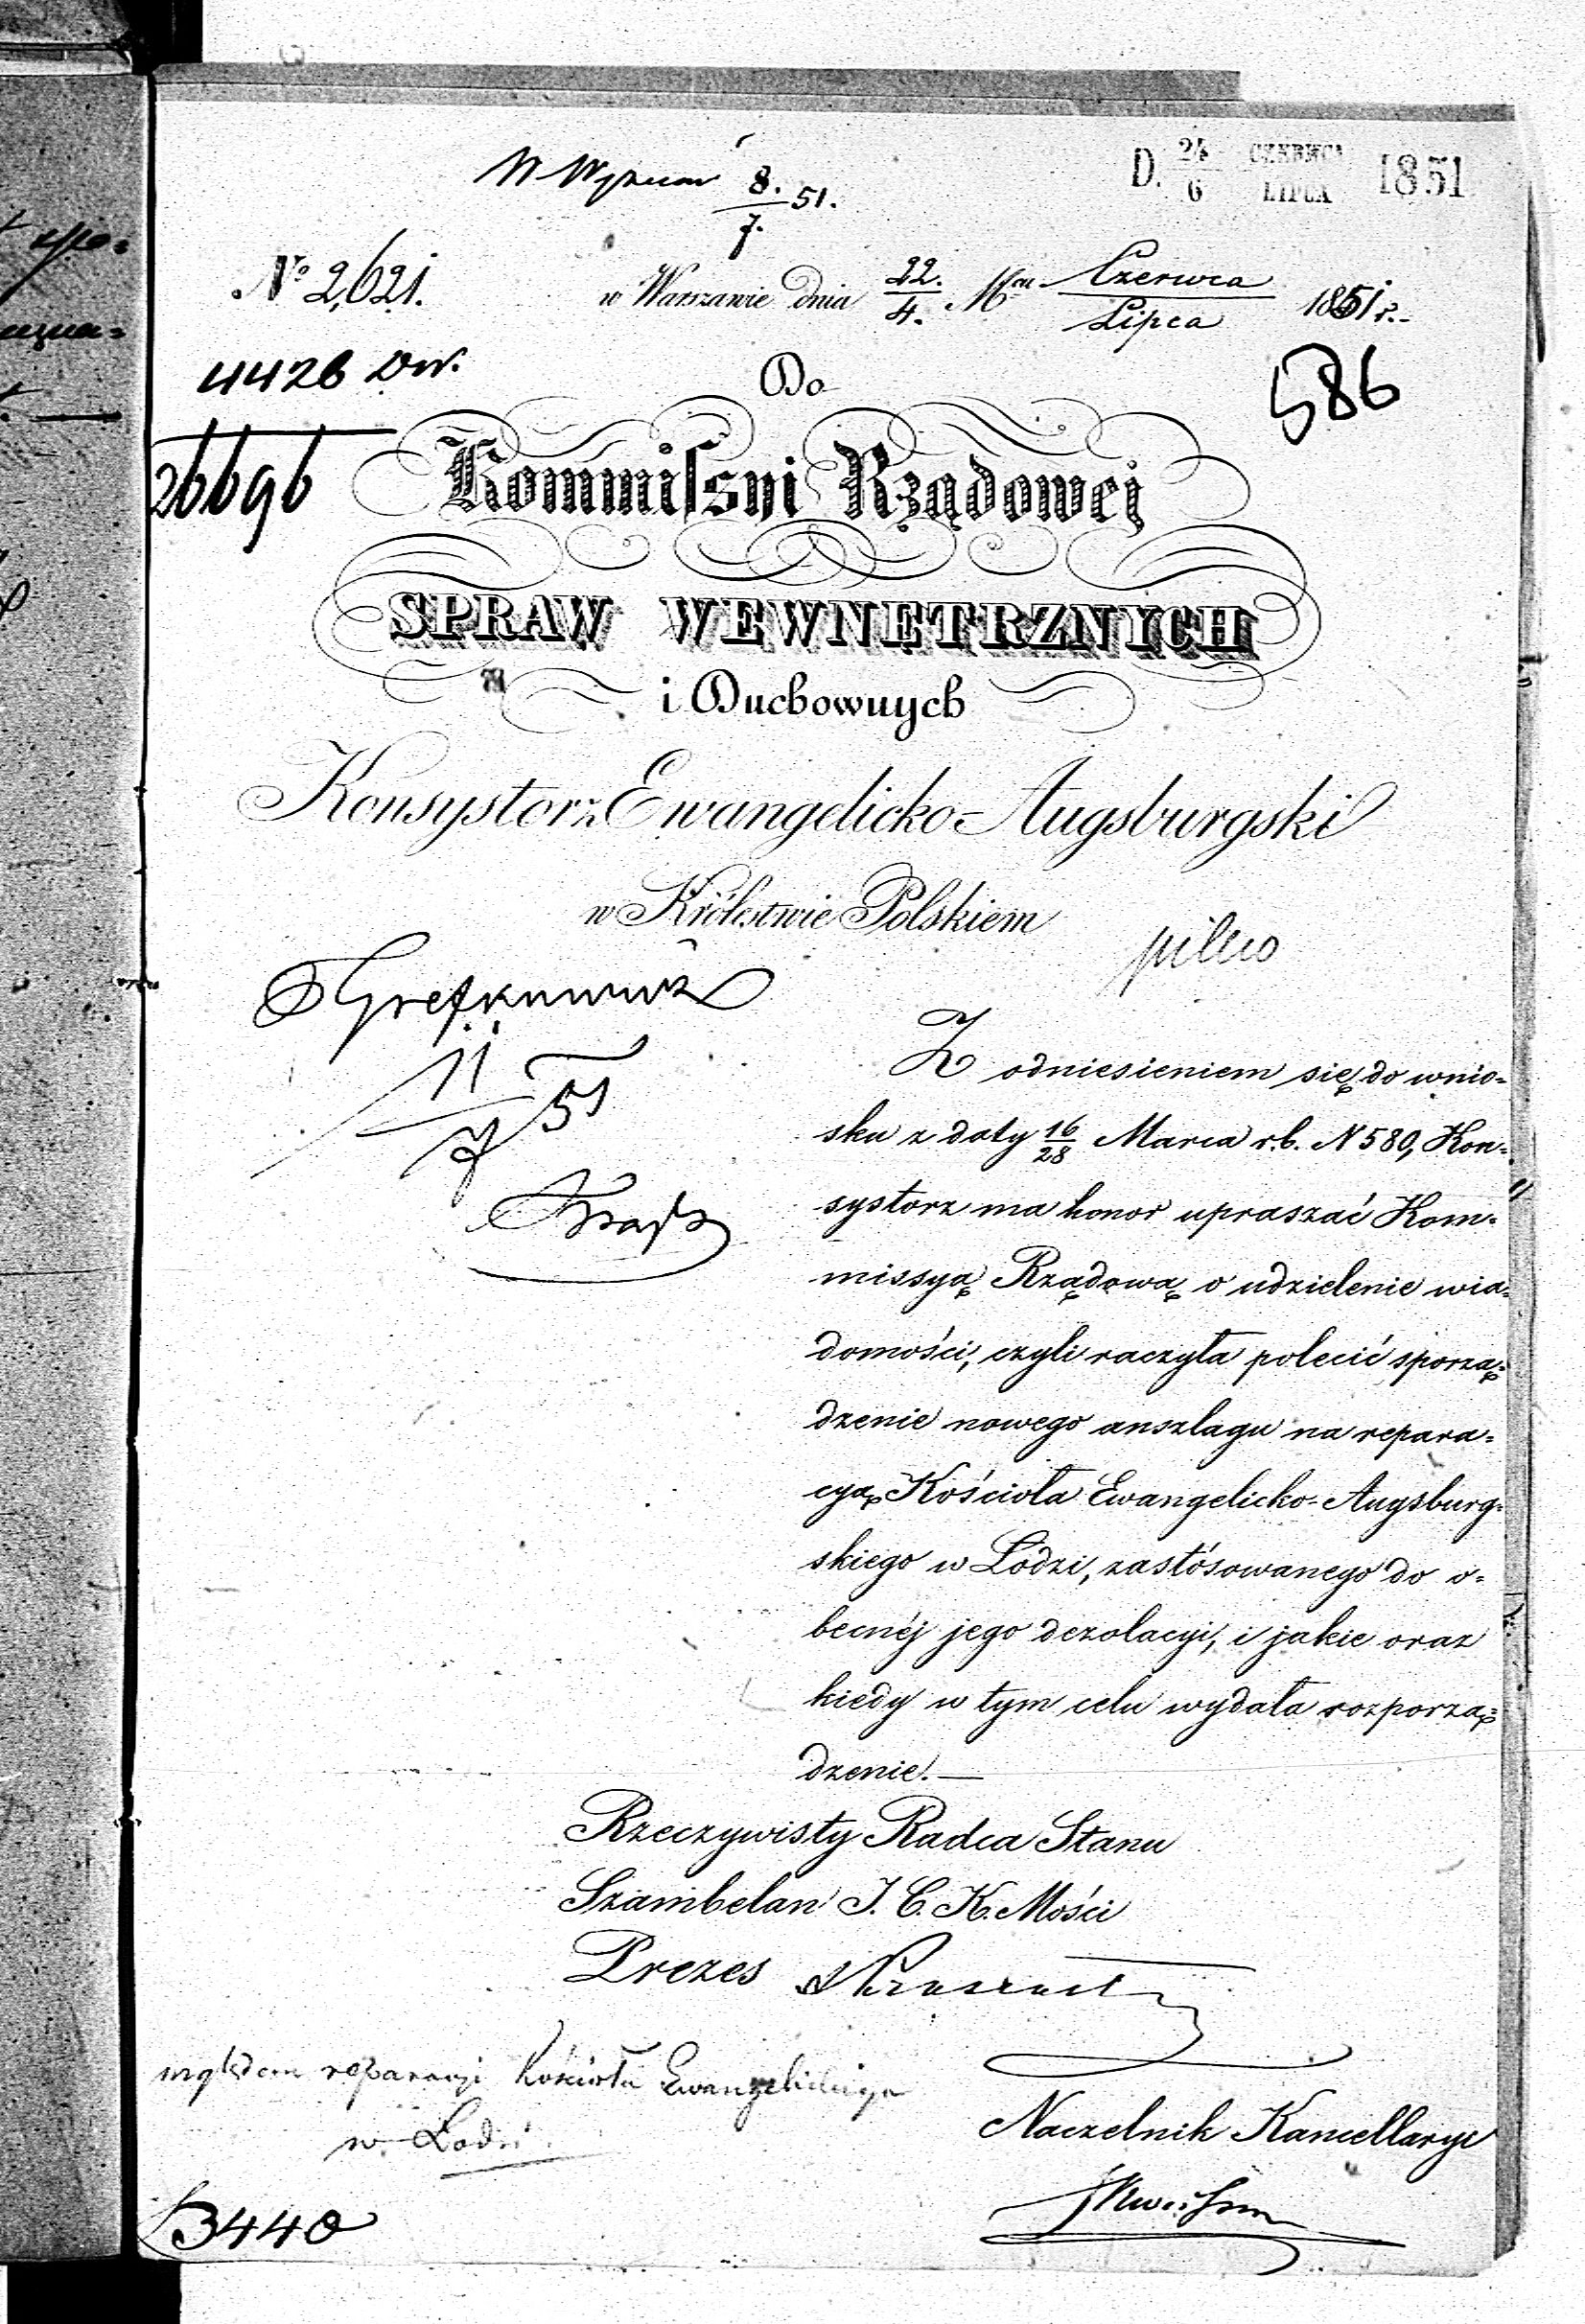 8./7. 51.
D. 24/6 CZERWCA/LIPCA 1851
No 2,621.
w Warszawie dnia 22./4. Mca Czerwca/Lipca 1851 r.
4426 Dw.
586
26696
Do
Kommissyi Rządowej
SPRAW WEWNĘTRZNYCH
i Duchownych
Konsystorz Ewangelicko-Augsburgski
w Królestwie Polskiem
pilno
11/7 51
Z odniesieniem się do wnio=
sku z daty 16/28 Marca r.b. N 580, Kon=
systorz ma honor upraszać Kom=
missyą Rządową o udzielenie wia=
domości, czyli raczyła polecić sporzą=
dzenie nowego anszlagu na repara=
cyą Kościoła Ewangelicko-Augsburg=
skiego w Łodzi, zastósowanego do o=
becnéj jego dezolacyi, i jakie oraz
kiedy w tym celu wydała rozporzą=
dzenie.—
Rzeczywisty Radca Stanu
Szambelan J. C. K. Mości
Prezes
względem reparacyi Kościoła Ewangelickiego
w Łodzi
Naczelnik Kancellaryi
3440